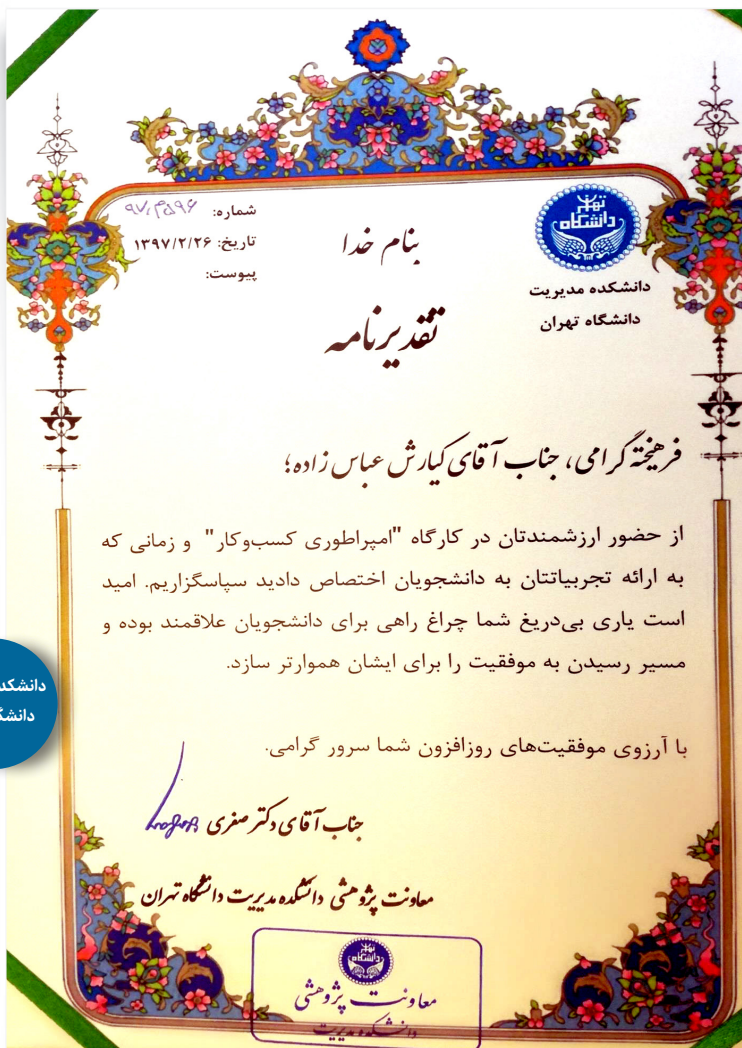 بنام خدا
تهران
دانشگاه
دانشکده مدیریت
دانشگاه تهران
شماره:
تاریخ: ۱۳۹۷/۲/۲۶
پیوست:
تقدیرنامه
فرهیخته گرامی، جناب آقای کیارش عباس زاده؛
از حضور ارزشمندتان در کارگاه "امپراطوری کسب‌وکار" و زمانی که
به ارائه تجربیاتتان به دانشجویان اختصاص دادید سپاسگزاریم. امید
است یاری بی‌دریغ شما چراغ راهی برای دانشجویان علاقمند بوده و
مسیر رسیدن به موفقیت را برای ایشان هموارتر سازد.
با آرزوی موفقیت‌های روزافزون شما سرور گرامی.
جناب آقای دکتر صفری
معاونت پژوهشی دانشکده مدیریت دانشگاه تهران
تهران
دانشگاه
معاونت پژوهشی
دانشکده مدیریت